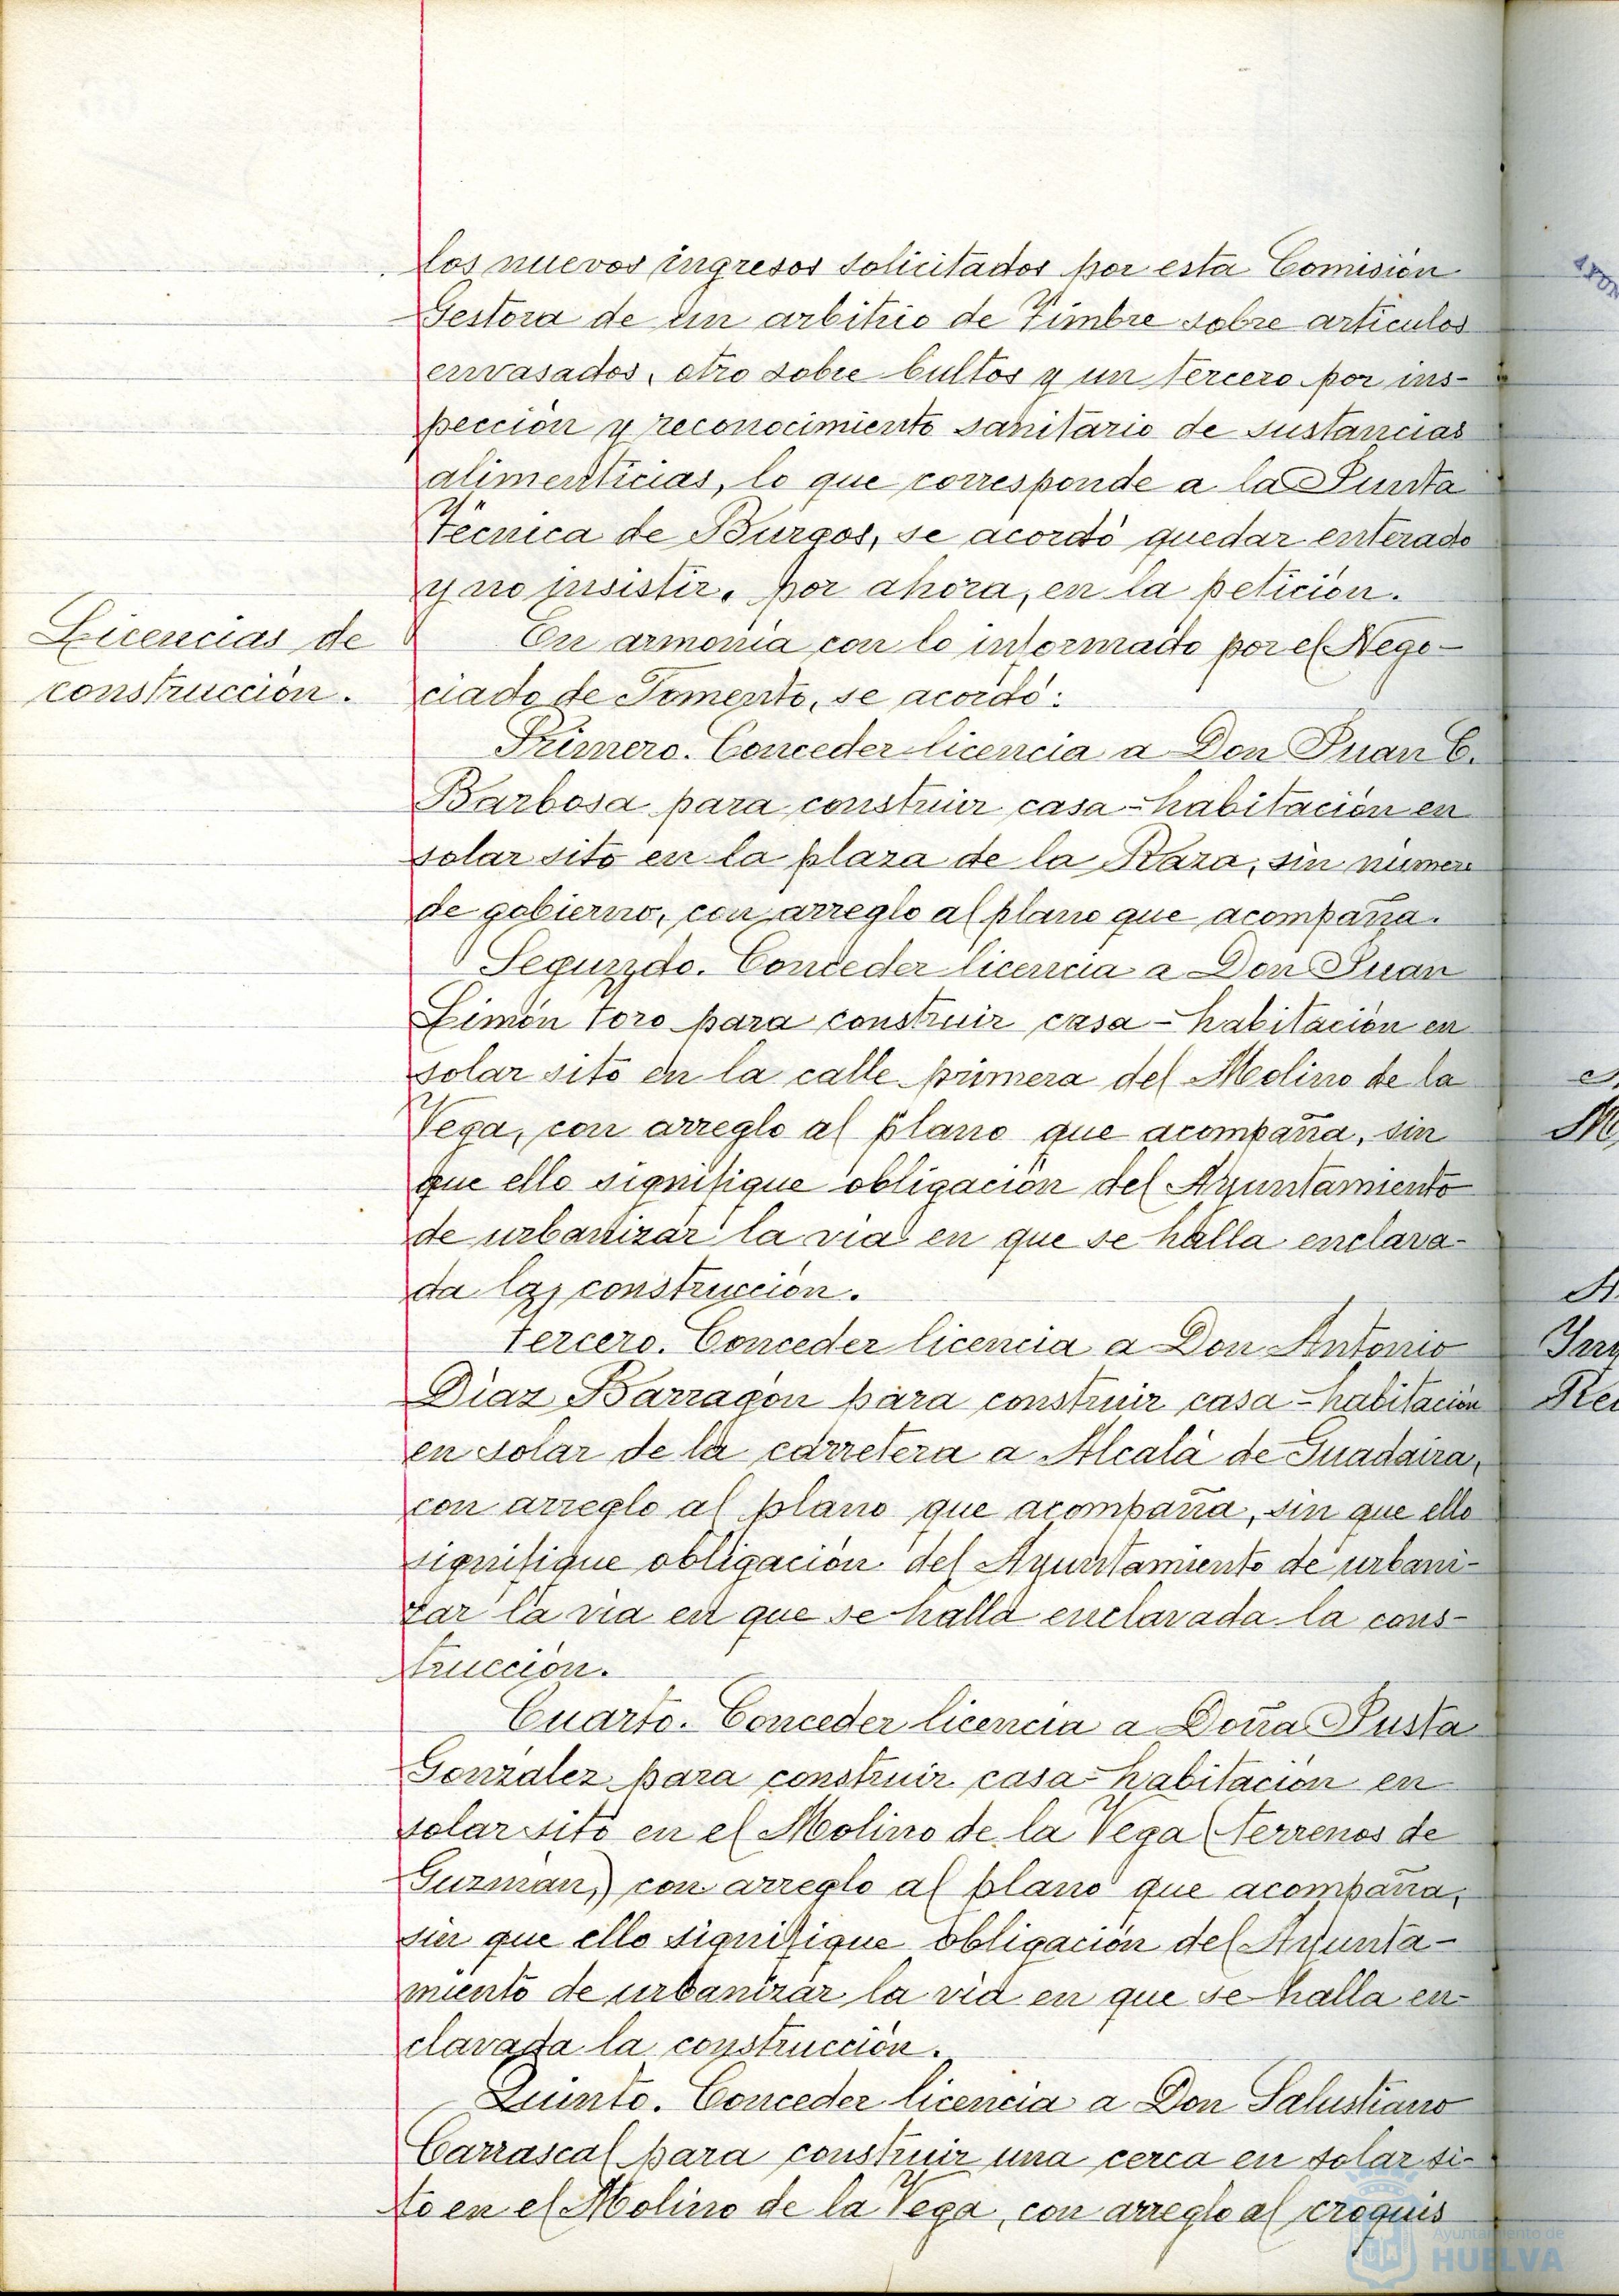 los nuevos ingresos solicitados por esta Comisión
Gestora de un arbitrio de Timbre sobre artículos
envasados, otro sobre bultos y un tercero por ins-
pección y reconocimiento sanitario de sustancias
alimenticias, lo que corresponde a la Junta
Técnica de Burgos, se acordó quedar enterado
y no insistir, por ahora, en la petición.
Licencias de
construcción.
En armonía con lo informado por el Nego-
ciado de Fomento, se acordó:
Primero. Conceder licencia a Don Juan C.
Barbosa para construir casa-habitación en
solar sito en la plaza de la Raza, sin número
de gobierno, con arreglo al plano que acompaña.
Segundo. Conceder licencia a Don Juan
Limón Toro para construir casa-habitación en
solar sito en la calle primera del Molino de la
Vega, con arreglo al plano que acompaña, sin
que ello signifique obligación del Ayuntamiento
de urbanizar la vía en que se halla enclava-
da la construcción.
Tercero. Conceder licencia a Don Antonio
Díaz Barragán para construir casa-habitación
en solar de la carretera a Alcalá de Guadaira,
con arreglo al plano que acompaña, sin que ello
signifique obligación del Ayuntamiento de urbani-
zar la vía en que se halla enclavada la cons-
trucción.
Cuarto. Conceder licencia a Doña Justa
González para construir casa-habitación en
solar sito en el Molino de la Vega (terrenos de
Guzmán,) con arreglo al plano que acompaña,
sin que ello signifique obligación del Ayunta-
miento de urbanizar la vía en que se halla en-
clavada la construcción.
Quinto. Conceder licencia a Don Salustiano
Carrascal para construir una cerca en solar si-
to en el Molino de la Vega, con arreglo al croquis
Ayuntamiento de
HUELVA